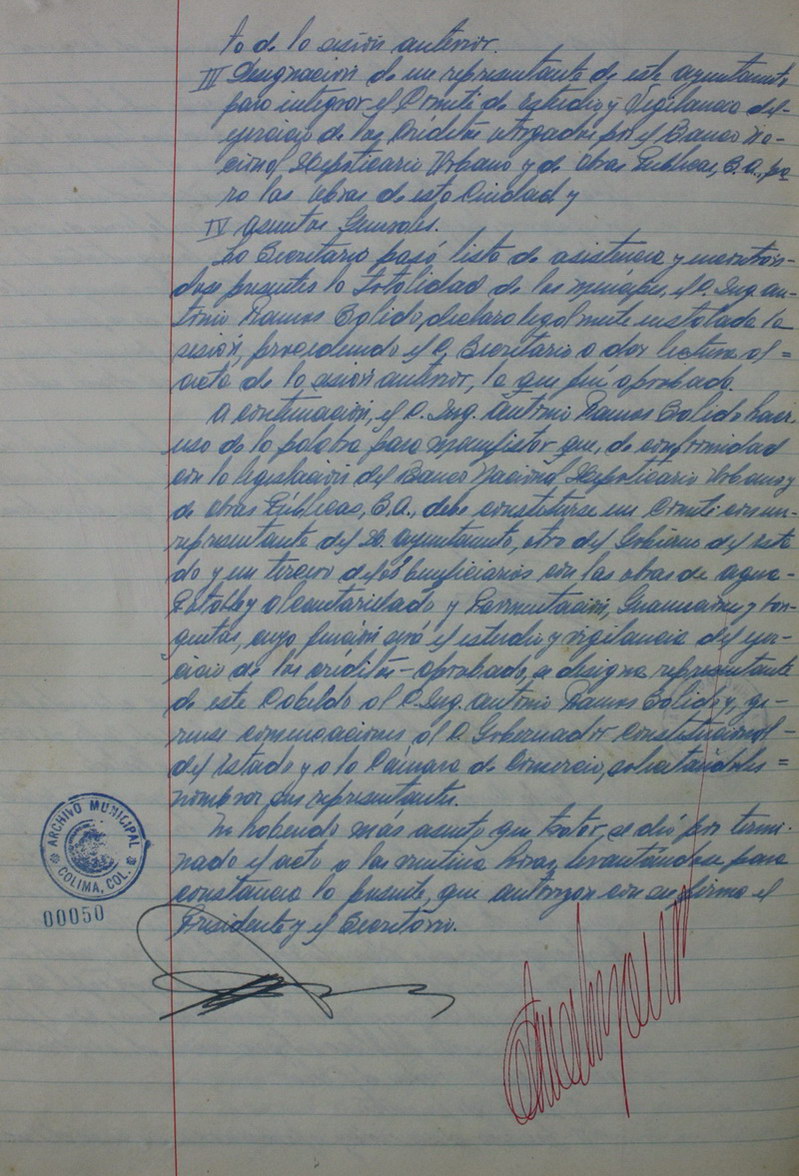 to de la sesión anterior.
III Designación de un representante de este ayuntamiento
para integrar el Comité de Estudio y Vigilancia del
ejercicio de los Créditos otorgados por el Banco Na-
cional Hipotecario Urbano y de Obras Públicas, S.A., pa-
ra las obras de esta Ciudad y
IV Asuntos Generales.
El Secretario pasó lista de asistencia y encontrán-
dose presentes la totalidad de los munícipes, el C. Ing. An-
tonio Ramos Salido, declaró legalmente instalada la
sesión, procediendo el C. Secretario a dar lectura al =
acta de la sesión anterior, la que fué aprobada.
A continuación, el C. Ing. Antonio Ramos Salido hace
uso de la palabra para manifestar que, de conformidad
con la legislación del Banco Nacional Hipotecario Urbano y
de Obras Públicas, S.A., debe constituirse un Comité con un-
representante del H. Ayuntamiento, otro del Gobierno del Esta
do y un tercero de los beneficiarios con las obras de agua-
Potable y alcantarillado y Pavimentación, Guarniciones y ban-
quetas, cuya función será el estudio y vigilancia del ejer-
cicio de los créditos - aprobado, se designa representante
de este Cabildo al C. Ing. Antonio Ramos Salido y, gí-
rense comunicaciones al C. Gobernador Constitucional -
del Estado y a la Cámara de Comercio, solicitándoles =
nombrar sus representantes.
No habiendo más asunto que tratar, se dió por termi-
nado el acto a las veintiuna horas, levantándose para
constancia la presente, que autorizan con su firma el
Presidente y el Secretario.
ARCHIVO MUNICIPAL
COLIMA, COL.
00050